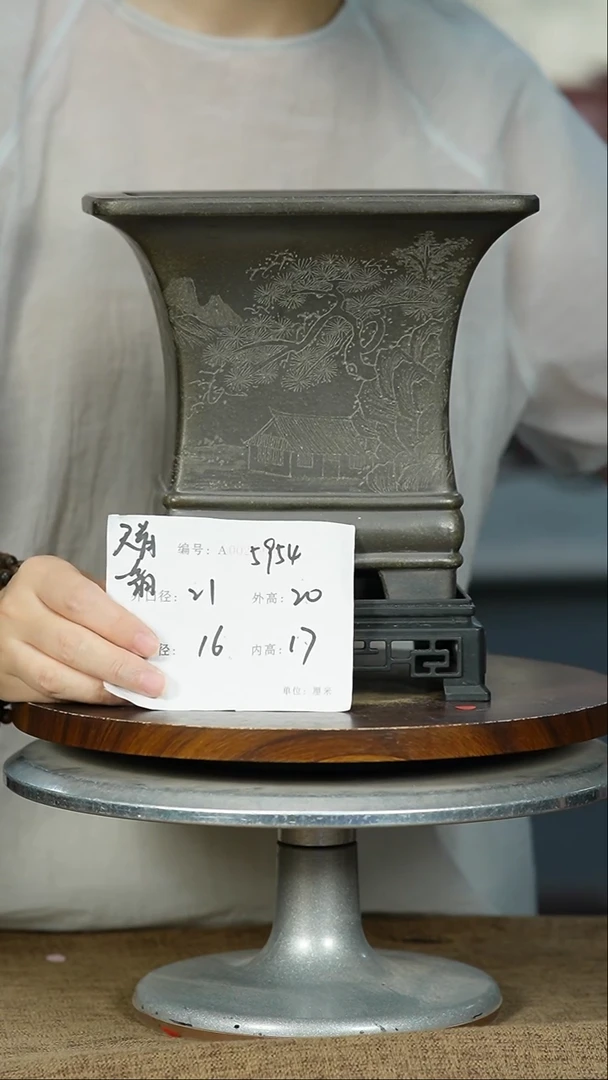 编号: A00 5954
外口径: 21 外高: 20
径: 16 内高: 17
单位: 厘米